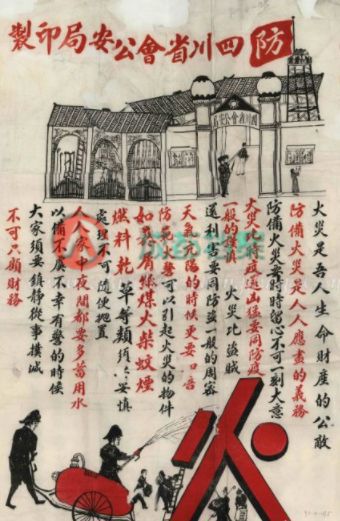 防
四川省會公安局印製
四川省會公安局
火災是吾人生命財産的公敵
防備火災是人人應盡的義務
防備火災要時時留心不可一刻大意
火災比瘟疫還凶猛要同防疫
一般的謹慎 火災比盜賊
還利害要同防盜一般的周密
天氣亢陽的時候更要
防 火警可以引起火災的物件
如果有 煤火柴蚊煙
燃料乾草等類須 妥慎
處理不可隨便拋置
人人家 夜間都要多蓄用水
以備不虞不幸有警的時候
大家須要鎮靜從事撲滅
不可只顧財務
火